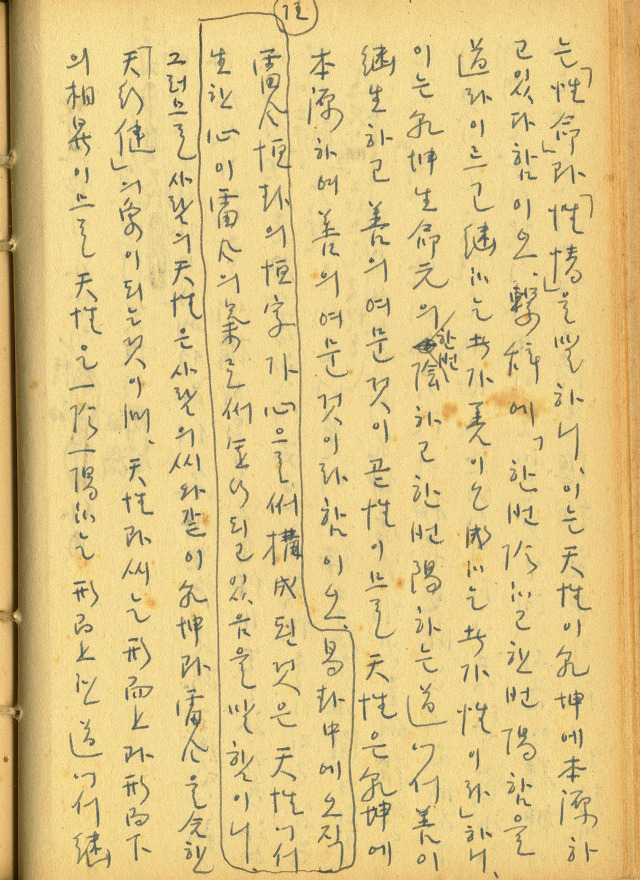 는「性命」과「性情」을 말하니, 이는 天性이 乾坤에 本源하
고 있다 함이오. 繫辭에「한번 陰하고 한번 陽함을
道라 이르고 繼하는 者가 善이오 成하는 者가 性이라」하니,
이는 乾坤生命元의 한번 陰하고 한번 陽하는 道에서 善이
繼生하고 善의 여문 것이 곧 性이므로 天性은 乾坤에
本源하여 善의 여문 것이라 함이오. 易卦中에 오직
雷風恒卦의 恒字가 心으로써 構成된 것은 天性에서
生한 心이 雷風의 氣로써 運行되고 있음을 말함이니
그러므로 사람의 天性은 사람의 씨와 같이 乾坤과 雷風을 含한
「天行健」의 象이 되는 것이며, 天性과 씨는 形而上과 形而下
의 相異이므로 天性은 一陰一陽하는 形而上인 道에서 繼